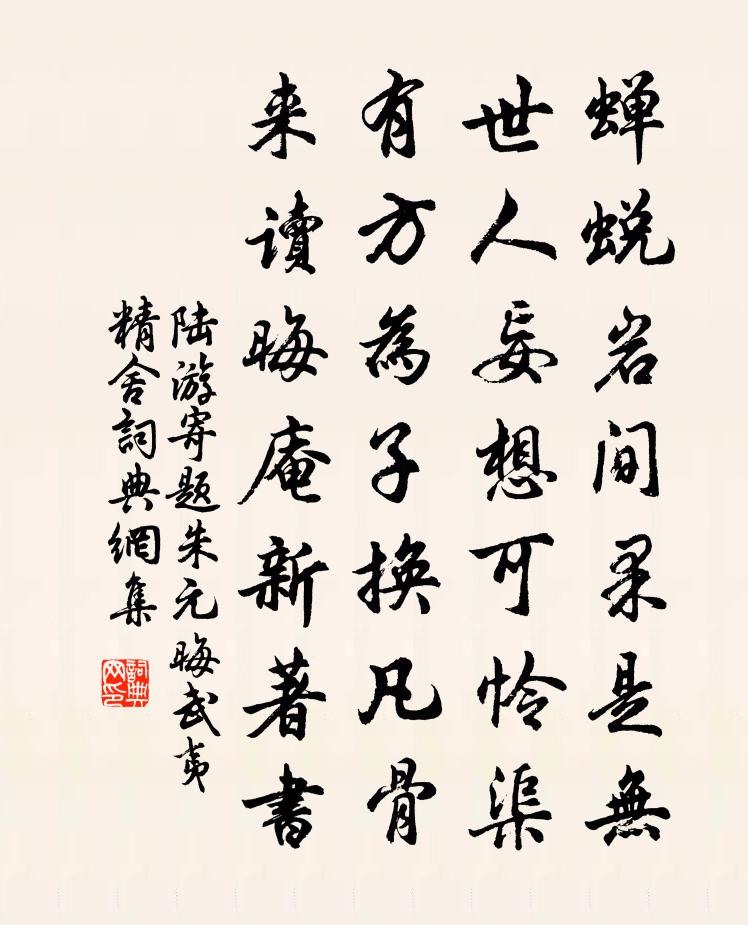 蝉蜕岩间果是無
世人妄想可怜渠
有方為子換凡骨
来讀晦庵新著書
陆游寄题朱元晦武夷
精舍詞典網集
詞典网印